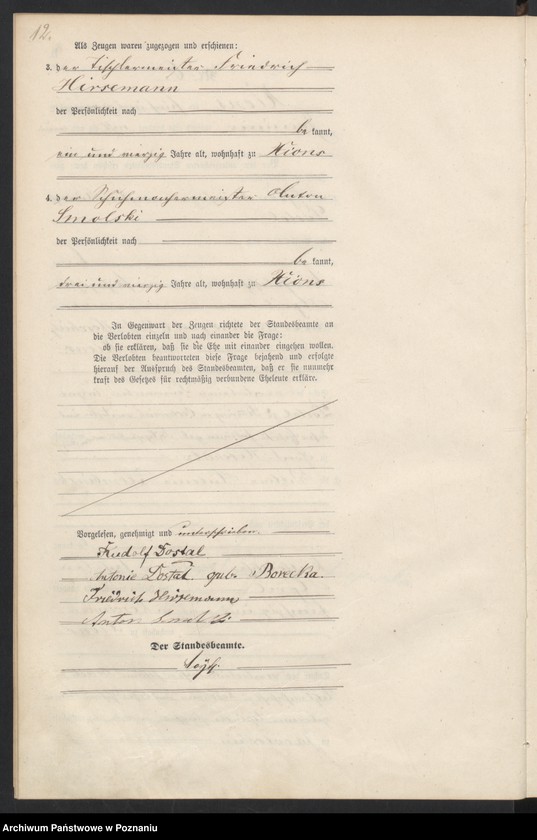 12.
Als Zeugen waren zugezogen und erschienen:
3. der Tischlermeister Friedrich
Hirsemann
der Persönlichkeit nach
be kannt,
ein und vierzig Jahre alt, wohnhaft zu Xions
4. der Schuhmachermeister Anton
Smolski
der Persönlichkeit nach
be kannt,
drei und vierzig Jahre alt, wohnhaft zu Xions
In Gegenwart der Zeugen richtete der Standesbeamte an
die Verlobten einzeln und nach einander die Frage:
ob sie erklären, daß sie die Ehe mit einander eingehen wollen.
Die Verlobten beantworteten diese Frage bejahend und erfolgte
hierauf der Ausspruch des Standesbeamten, daß er sie nunmehr
kraft des Gesetzes für rechtmäßig verbundene Eheleute erkläre.
Vorgelesen, genehmigt und unterschrieben
Rudolf Dostal
Antonie Dostal geb. Borecka.
Friedrich Hirsemann
Anton Smolski
Der Standesbeamte.
Archiwum Państwowe w Poznaniu